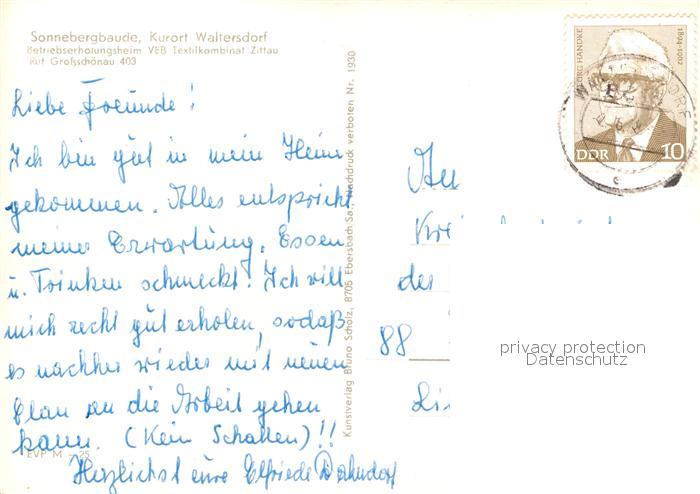 Sonnebergbaude, Kurort Waltersdorf
Betriebserholungsheim VEB Textilkombinat Zittau
Ruf Großschönau 403
Liebe Freunde!
Ich bin gut in mein Heim
gekommen. Alles entspricht
meiner Erwartung. Essen
u. Trinken schmeckt. Ich will
mich recht gut erholen, sodaß
es nachher wieder mit neuem
Elan an die Arbeit gehen
kann. (Kein Schatten)!!
Herzlichst eure Elfriede
EVP M -,25
Kunstverlag Bruno Scholz, 8705 Ebersbach/Sa. Nachdruck verboten Nr. 1930
GEORG HANDKE
1894-1962
DDR 10
An
der
88
privacy protection
Datenschutz